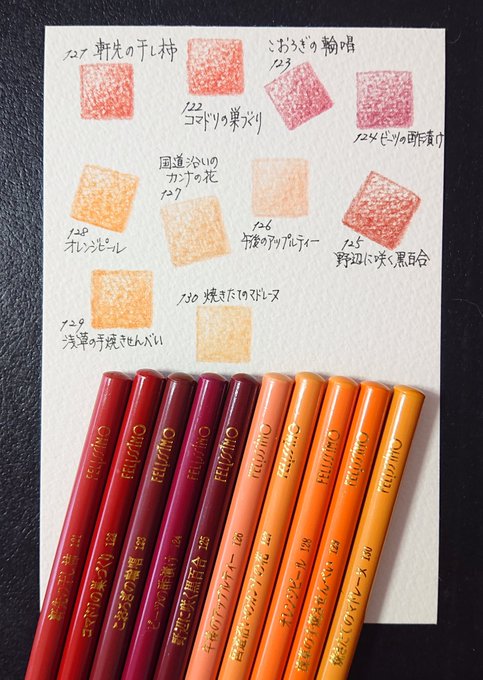 121 軒先の干し柿
122
コマドリの巣づくり
こおろぎの輪唱
123
124 ビーツの酢漬け
128
オレンジピール
国道沿いの
カンナの花
127
126
午後のアップルティー
125
野辺に咲く黒百合
129
浅草の手焼きせんべい
130 焼きたてのマドレーヌ
FELISSIMO 121 軒先の干し柿
FELISSIMO 122 コマドリの巣づくり
FELISSIMO 123 こおろぎの輪唱
FELISSIMO 124 ビーツの酢漬け
FELISSIMO 125 野辺に咲く黒百合
FELISSIMO 126 午後のアップルティー
FELISSIMO 127 国道沿いのカンナの花
FELISSIMO 128 オレンジピール
FELISSIMO 129 浅草の手焼きせんべい
FELISSIMO 130 焼きたてのマドレーヌ